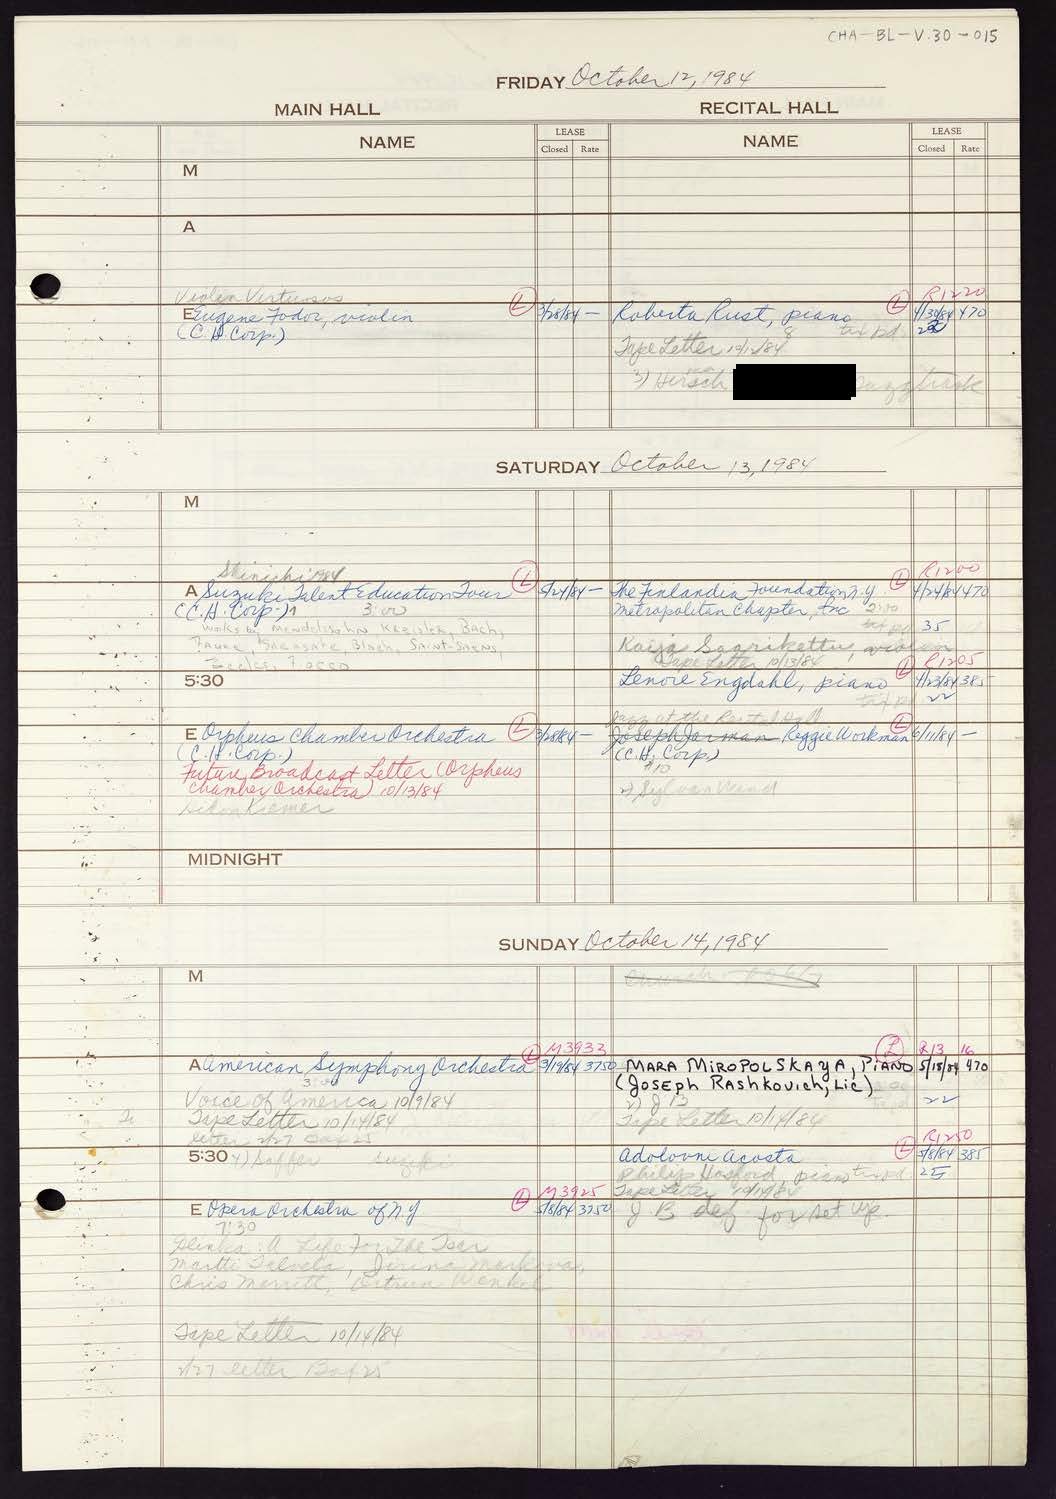 CHA-BL-V.30-015
FRIDAY October 12, 1984
MAIN HALL RECITAL HALL
NAME LEASE Closed Rate NAME LEASE Closed Rate
M
A
Violin Virtuosos
E Eugene Fodor, violin L 3/28/84 —
(C.H. Corp.)
R1220
Roberta Rust, piano L 4/30/84 470
8 txt pd.
Tape Letter 10/12/84
3) Hirsch
SATURDAY October 13, 1984
M
Shinichi 1984
A Suzuki Talent Education Tour L 5/24/84 —
(C.H. Corp.) 3:00
works by Mendelssohn Kreisler, Bach,
Faure, Sarasate, Bloch, Saint-Saens,
Eccles, Fiocco
R1200
The Finlandia Foundation N.Y. L 4/24/84 470
Metropolitan Chapter, Inc 2:00
txt pd 35
Kaija Saarikettu, violin
Tape Letter 10/13/84
5:30
R1205
Lenore Engdahl, piano L 4/23/84 385
txt pd 22
E Orpheus Chamber Orchestra L 3/28/84 —
(C.H. Corp.)
Future Broadcast Letter (Orpheus
Chamber Orchestra) 10/13/84
Gidon Kremer
Jazz at the Recital Hall
Joseph Jarman Reggie Workman L 6/11/84 —
(C.H. Corp.)
$10
MIDNIGHT
SUNDAY October 14, 1984
M
Church
M3932
A American Symphony Orchestra L 3/19/84 3750
3:00
Voice of America 10/9/84
Tape Letter 10/14/84
letter 2/27 Box 25
R13 16
MARA MIROPOLSKAYA, PIANO L 5/18/84 470
(Joseph Rashkovich, Lic)
22
Tape Letter 10/14/84
5:30
R1250
Adolovni Acosta L 5/8/84 385
Philip Hosford piano txt pd 25
Tape Letter
J B def for set up.
M3925
E Opera Orchestra of N.Y. L 5/8/84 3750
7:30
Glinka: A Life For The Tsar
Martti Talvela, Jirina Markova,
Chris Merritt, Ortrun Wenkel
Tape Letter 10/14/84
2/27 letter Box 25